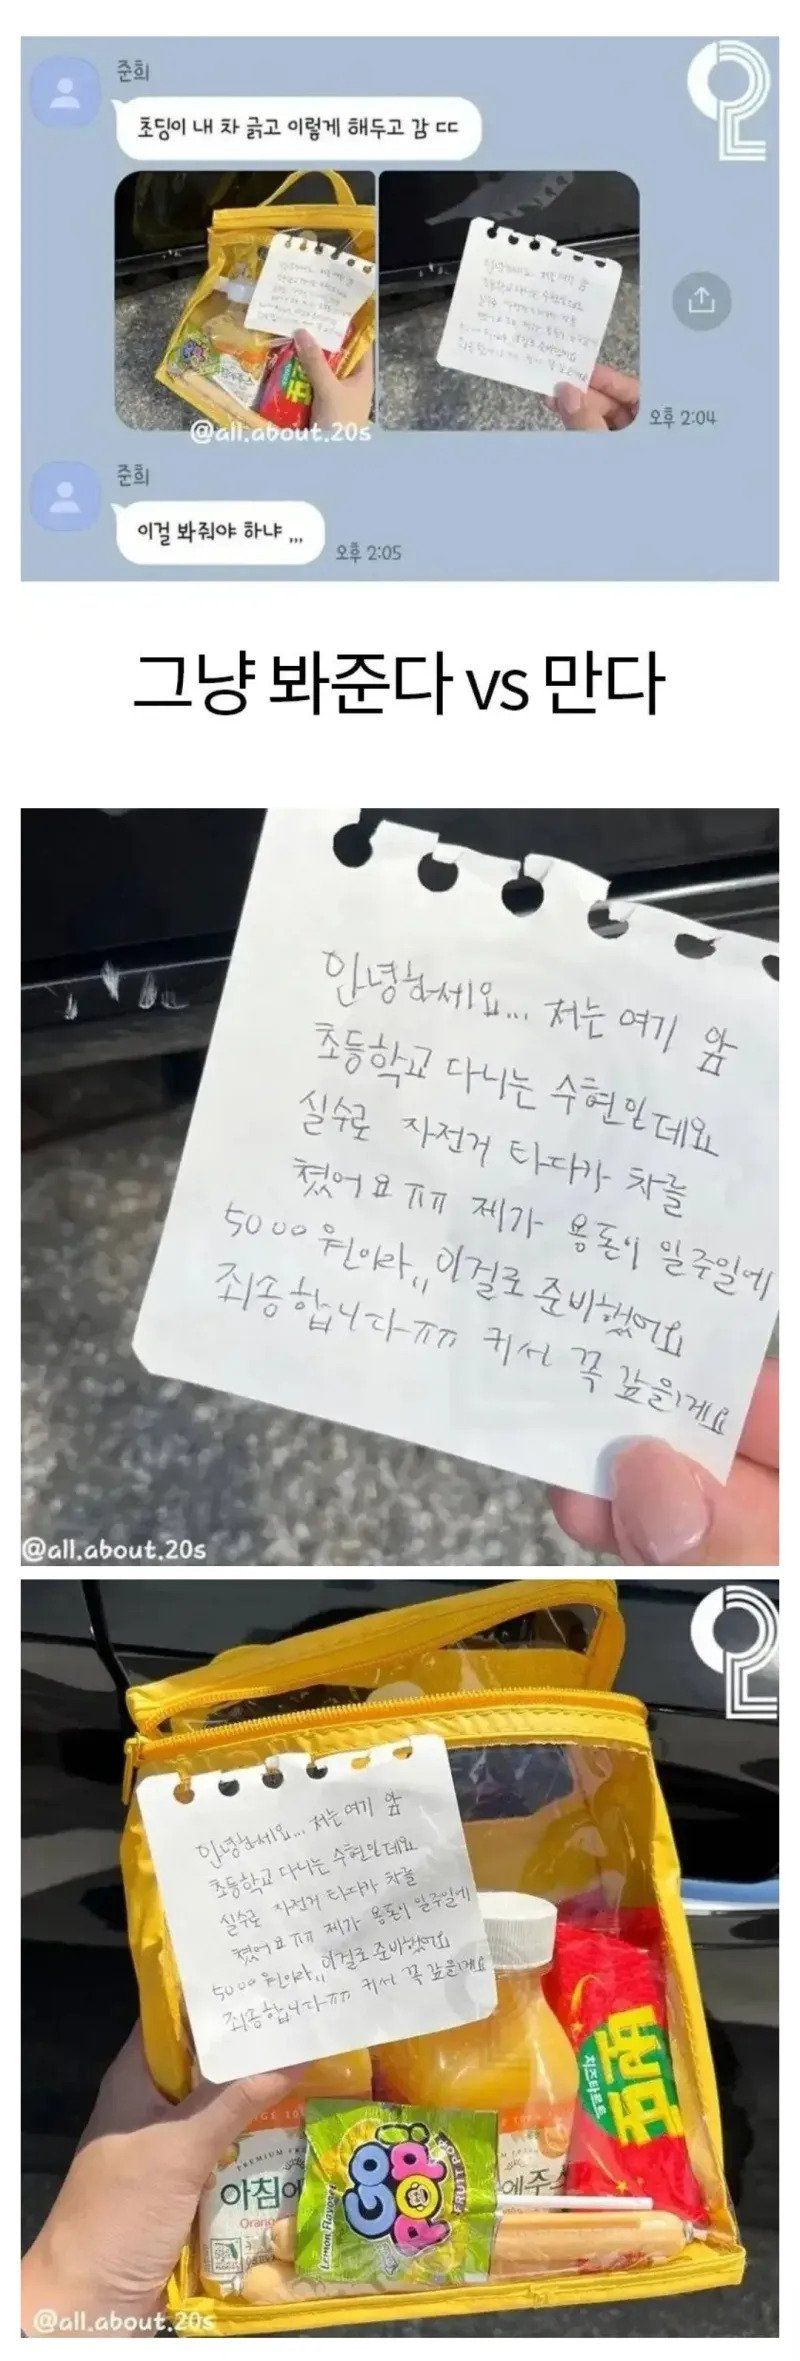 준희
초딩이 내 차 긁고 이렇게 해두고 감 ㄷㄷ
@all.about.20s
오후 2:04
준희
이걸 봐줘야 하냐 ,,,
오후 2:05
그냥 봐준다 vs 만다
안녕하세요... 저는 여기 앞
초등학교 다니는 수현인데요
실수로 자전거 타다가 차를
쳤어요ㅠㅠ 제가 용돈이 일주일에
5000원이라,, 이걸로 준비했어요
죄송합니다ㅠㅠ 커서 꼭 갚을게요
@all.about.20s
안녕하세요... 저는 여기 앞
초등학교 다니는 수현인데요
실수로 자전거 타다가 차를
쳤어요ㅠㅠ 제가 용돈이 일주일에
5000원이라,, 이걸로 준비했어요
죄송합니다ㅠㅠ 커서 꼭 갚을게요
치즈타르트
PREMIUM
아침에
에주스
Orang
GO!
POP
FRUIT POP
Lemon Flavor
@all.about.20s